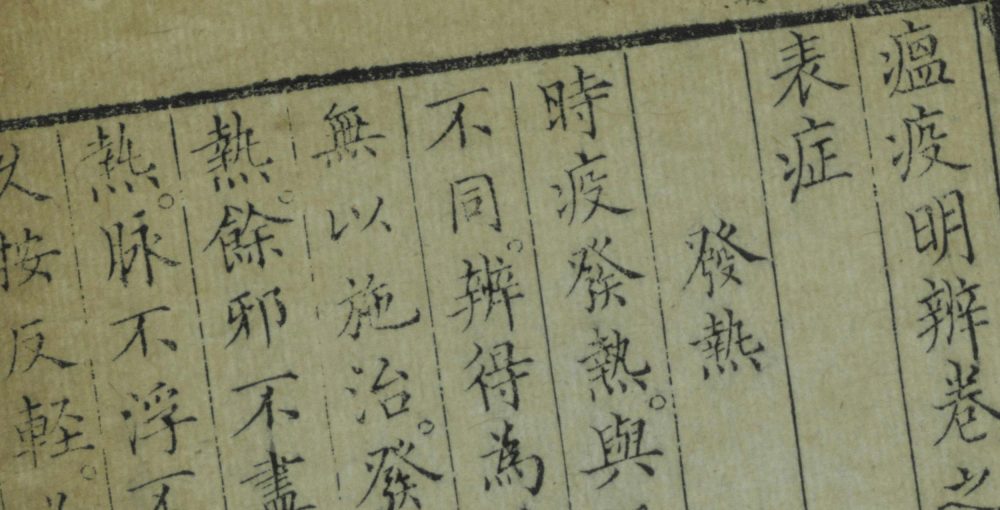 瘟疫明辨卷之
表症
發熱
時疫發熱。與
不同。辨得為
無以施治。發
熱。餘邪不盡
熱。脉不浮不
久按反軽。